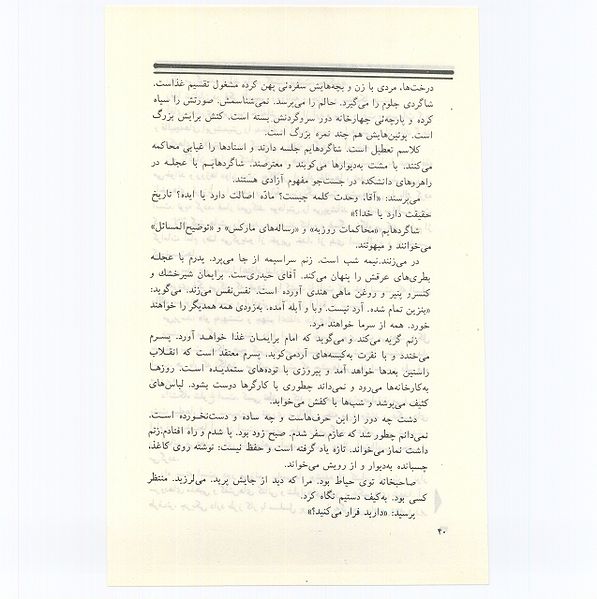 درخت‌ها، مردی با زن و بچه‌هایش سفره‌ئی پهن کرده مشغول تقسیم غذاست.
شاگردی جلوم را می‌گیرد. حالم را می‌پرسد. نمی‌شناسمش. صورتش را سیاه
کرده و پارچه‌ئی چهارخانه دور سروگردنش بسته است. کتش برایش بزرگ
است. پوتین‌هایش هم چند نمره بزرگ است.
کلاسم تعطیل است. شاگردهایم جلسه دارند و استادها را غیابی محاکمه
می‌کنند. با مشت به‌دیوارها می‌کوبند و معترضند. شاگردهایم با عجله در
راهروهای دانشکده در جست‌جو مفهوم آزادی هستند.
می‌پرسند: «آقا، وحدت کلمه چیست؟ ماده اصالت دارد یا ایده؟ تاریخ
حقیقت دارد یا خدا؟»
شاگردهایم «محاکمات روزبه» و «رساله‌های مارکس» و «توضیح‌المسائل»
می‌خوانند و مبهوتند.
در می‌زنند.نیمه شب است. زنم سراسیمه از جا می‌پرد. پدرم با عجله
بطری‌های عرقش را پنهان می‌کند. آقای حیدری‌ست. برایمان شیرخشک و
کنسرو پنیر و روغن ماهی هندی آورده است. نفس‌نفس می‌زند. می‌گوید:
«بنزین تمام شده. آرد نیست. وبا و آبله آمده. به‌زودی همه همدیگر را خواهند
خورد. همه از سرما خواهند مرد.
زنم گریه می‌کند و می‌گوید که امام برایمان غذا خواهد آورد. پسرم
می‌خندد و با نفرت به‌کیسه‌های آردمی‌کوبد. پسرم معتقد است که انقلاب
راستین بعدها خواهد آمد و پیروزی با توده‌های ستمدیده است. روزها
به‌کارخانه‌ها می‌رود و نمی‌داند چطوری با کارگرها دوست بشود. لباس‌های
کثیف می‌پوشد و شب‌ها با کفش می‌خوابد.
دشت چه دور از این حرف‌هاست و چه ساده و دست‌نخورده است.
نمی‌دانم چطور شد که عازم سفر شدم. صبح زود بود. پا شدم و راه افتادم.زنم
داشت نماز می‌خواند. تازه یاد گرفته است و حفظ نیست: نوشته روی کاغذ،
چسبانده به‌دیوار و از رویش می‌خواند.
صاحبخانه توی حیاط بود. مرا که دید از جایش پرید. می‌لرزید. منتظر
کسی بود. به‌کیف دستیم نگاه کرد.
پرسید: «دارید فرار می‌کنید؟»
۴۰